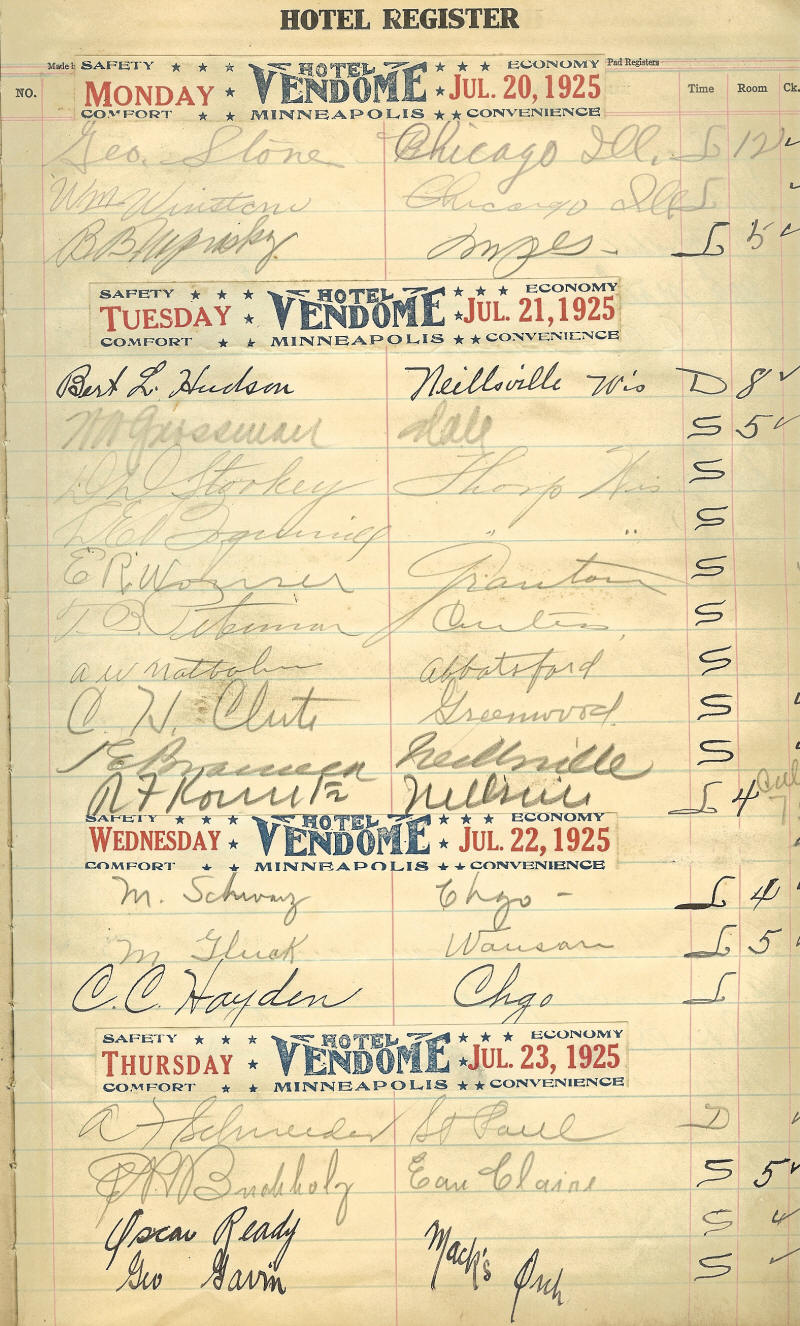 HOTEL REGISTER
Made Pad Registers
NO. Time Room Ck.
SAFETY ★ ★ ★ HOTEL ★ ★ ★ ECONOMY
MONDAY ★ VENDOME ★ JUL. 20, 1925
COMFORT ★ ★ MINNEAPOLIS ★ ★ CONVENIENCE
Geo. Stone Chicago Ill. L 12 ✓
Wm Winston Chicago Ill L ✓
B B L 5 ✓
SAFETY ★ ★ ★ HOTEL ★ ★ ★ ECONOMY
TUESDAY ★ VENDOME ★ JUL. 21, 1925
COMFORT ★ ★ MINNEAPOLIS ★ ★ CONVENIENCE
Bert L. Hudson Neillsville Wis D 8 ✓
Grossman Dale S 5 ✓
Stookey Thorp Wis S
" " S
E R Granton S
T. B. S
A W Abbotsford S
C. H. Clute Greenwood S ✓
Neillsville S ✓
R F L 4
SAFETY ★ ★ ★ HOTEL ★ ★ ★ ECONOMY
WEDNESDAY ★ VENDOME ★ JUL. 22, 1925
COMFORT ★ ★ MINNEAPOLIS ★ ★ CONVENIENCE
M. Schwarz Chgo - L 4 ✓
M Gluck Wausau L 5 ✓
C. C. Hayden Chgo L
SAFETY ★ ★ ★ HOTEL ★ ★ ★ ECONOMY
THURSDAY ★ VENDOME ★ JUL. 23, 1925
COMFORT ★ ★ MINNEAPOLIS ★ ★ CONVENIENCE
A F Schneider St Paul D ✓
Buchholz Eau Claire S 5 ✓
Oscar Ready Mack's Orch S ✓
Geo Gavin S ✓